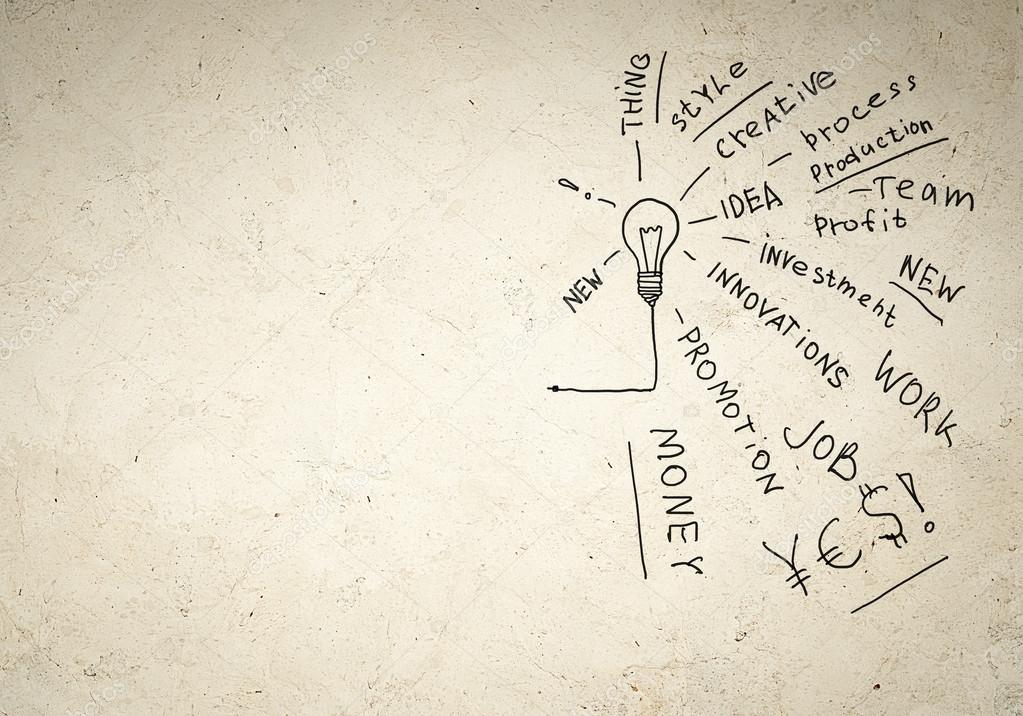 THING
STYLE
creative
process
Production
IDEA
-Team
Profit
!
NEW
investment
NEW
INNOVATIONS
WORK
PROMOTION
JOB
MONEY
¥ € $ !
depositphotos